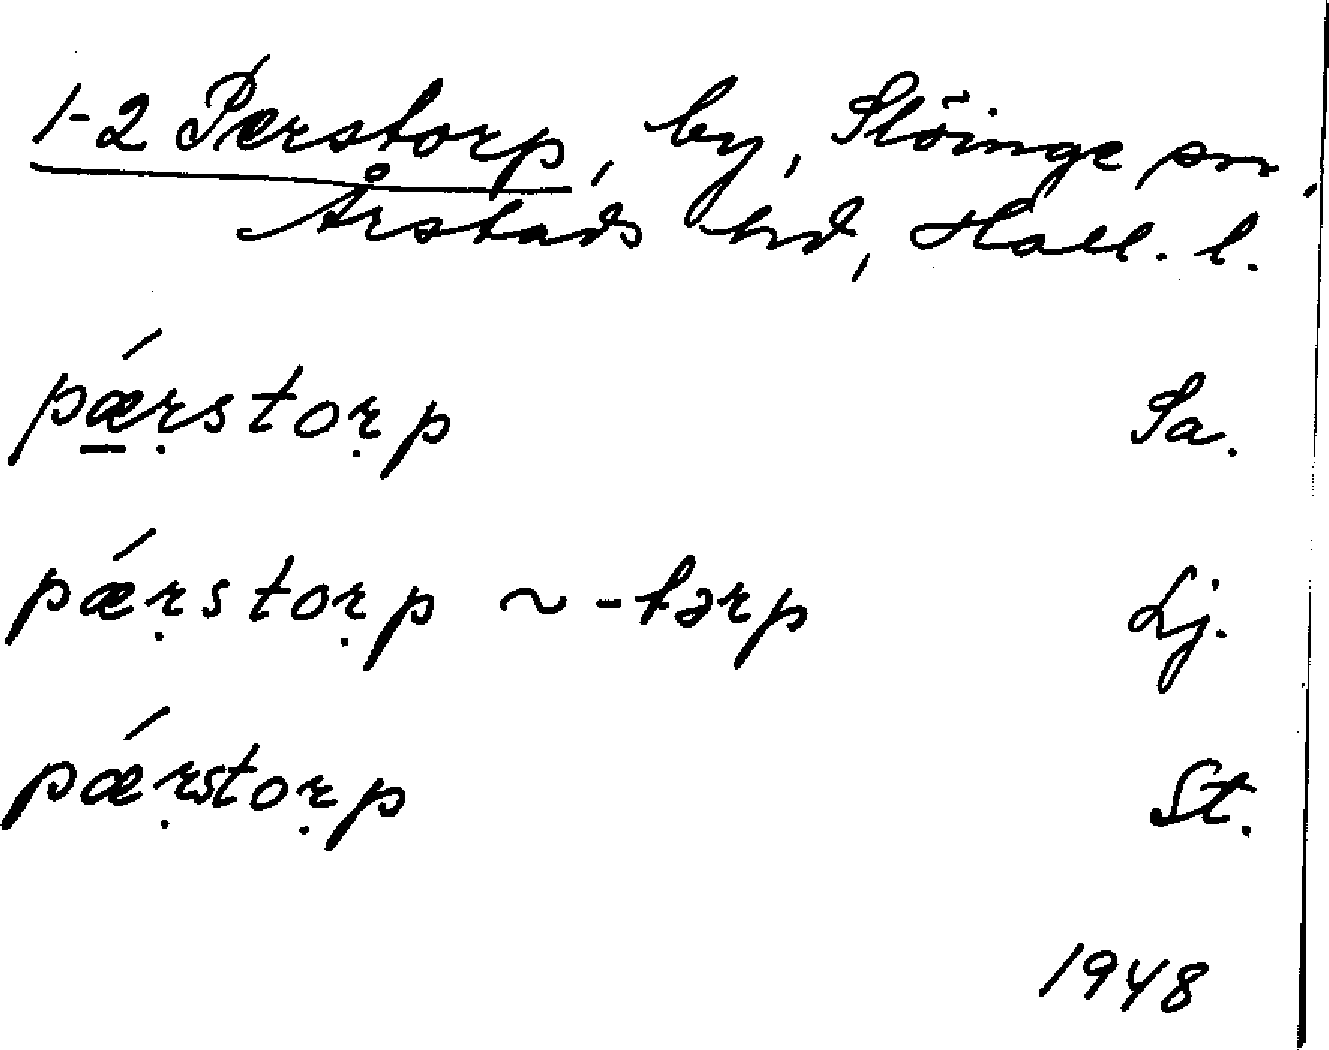 1-2 Perstorp, by, Slöinge sn,
Årstads hd, Hall. l.
pǽṛstoṛp Sa.
pǽṛstoṛp ~ -tərp Lj.
pǽṛstoṛp St.
1948